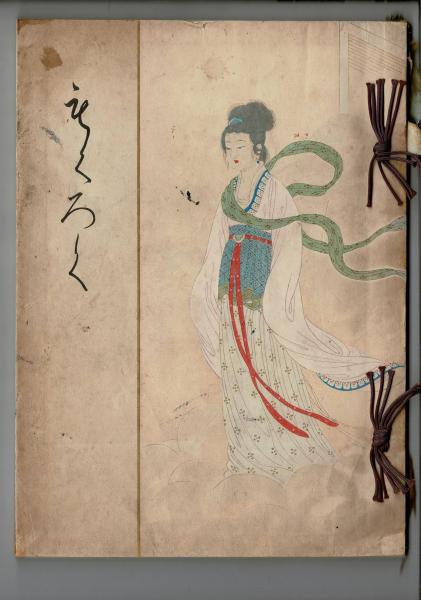 もくろく